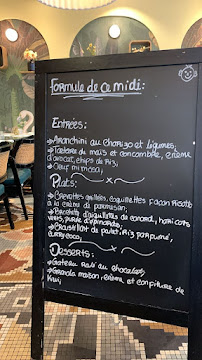 Formule de ce midi:
Entrées:
→ Arranchini au chorizo et légumes,
→ Tartare de maïs et concombre, crème
d'avocat, chips de Riz,
→ Oeuf mimosa,
Plats:
→ Crevettes grillées, coquillettes façon Risotto
à la crème de parmesan
→ d'aiguillettes de canard, haricots
verts, purée
→ de poulet, Riz parfumé,
curry coco,
Desserts:
→ Gateau Rosé au chocolat,
→ maison, crème et confiture de
Kiwi,